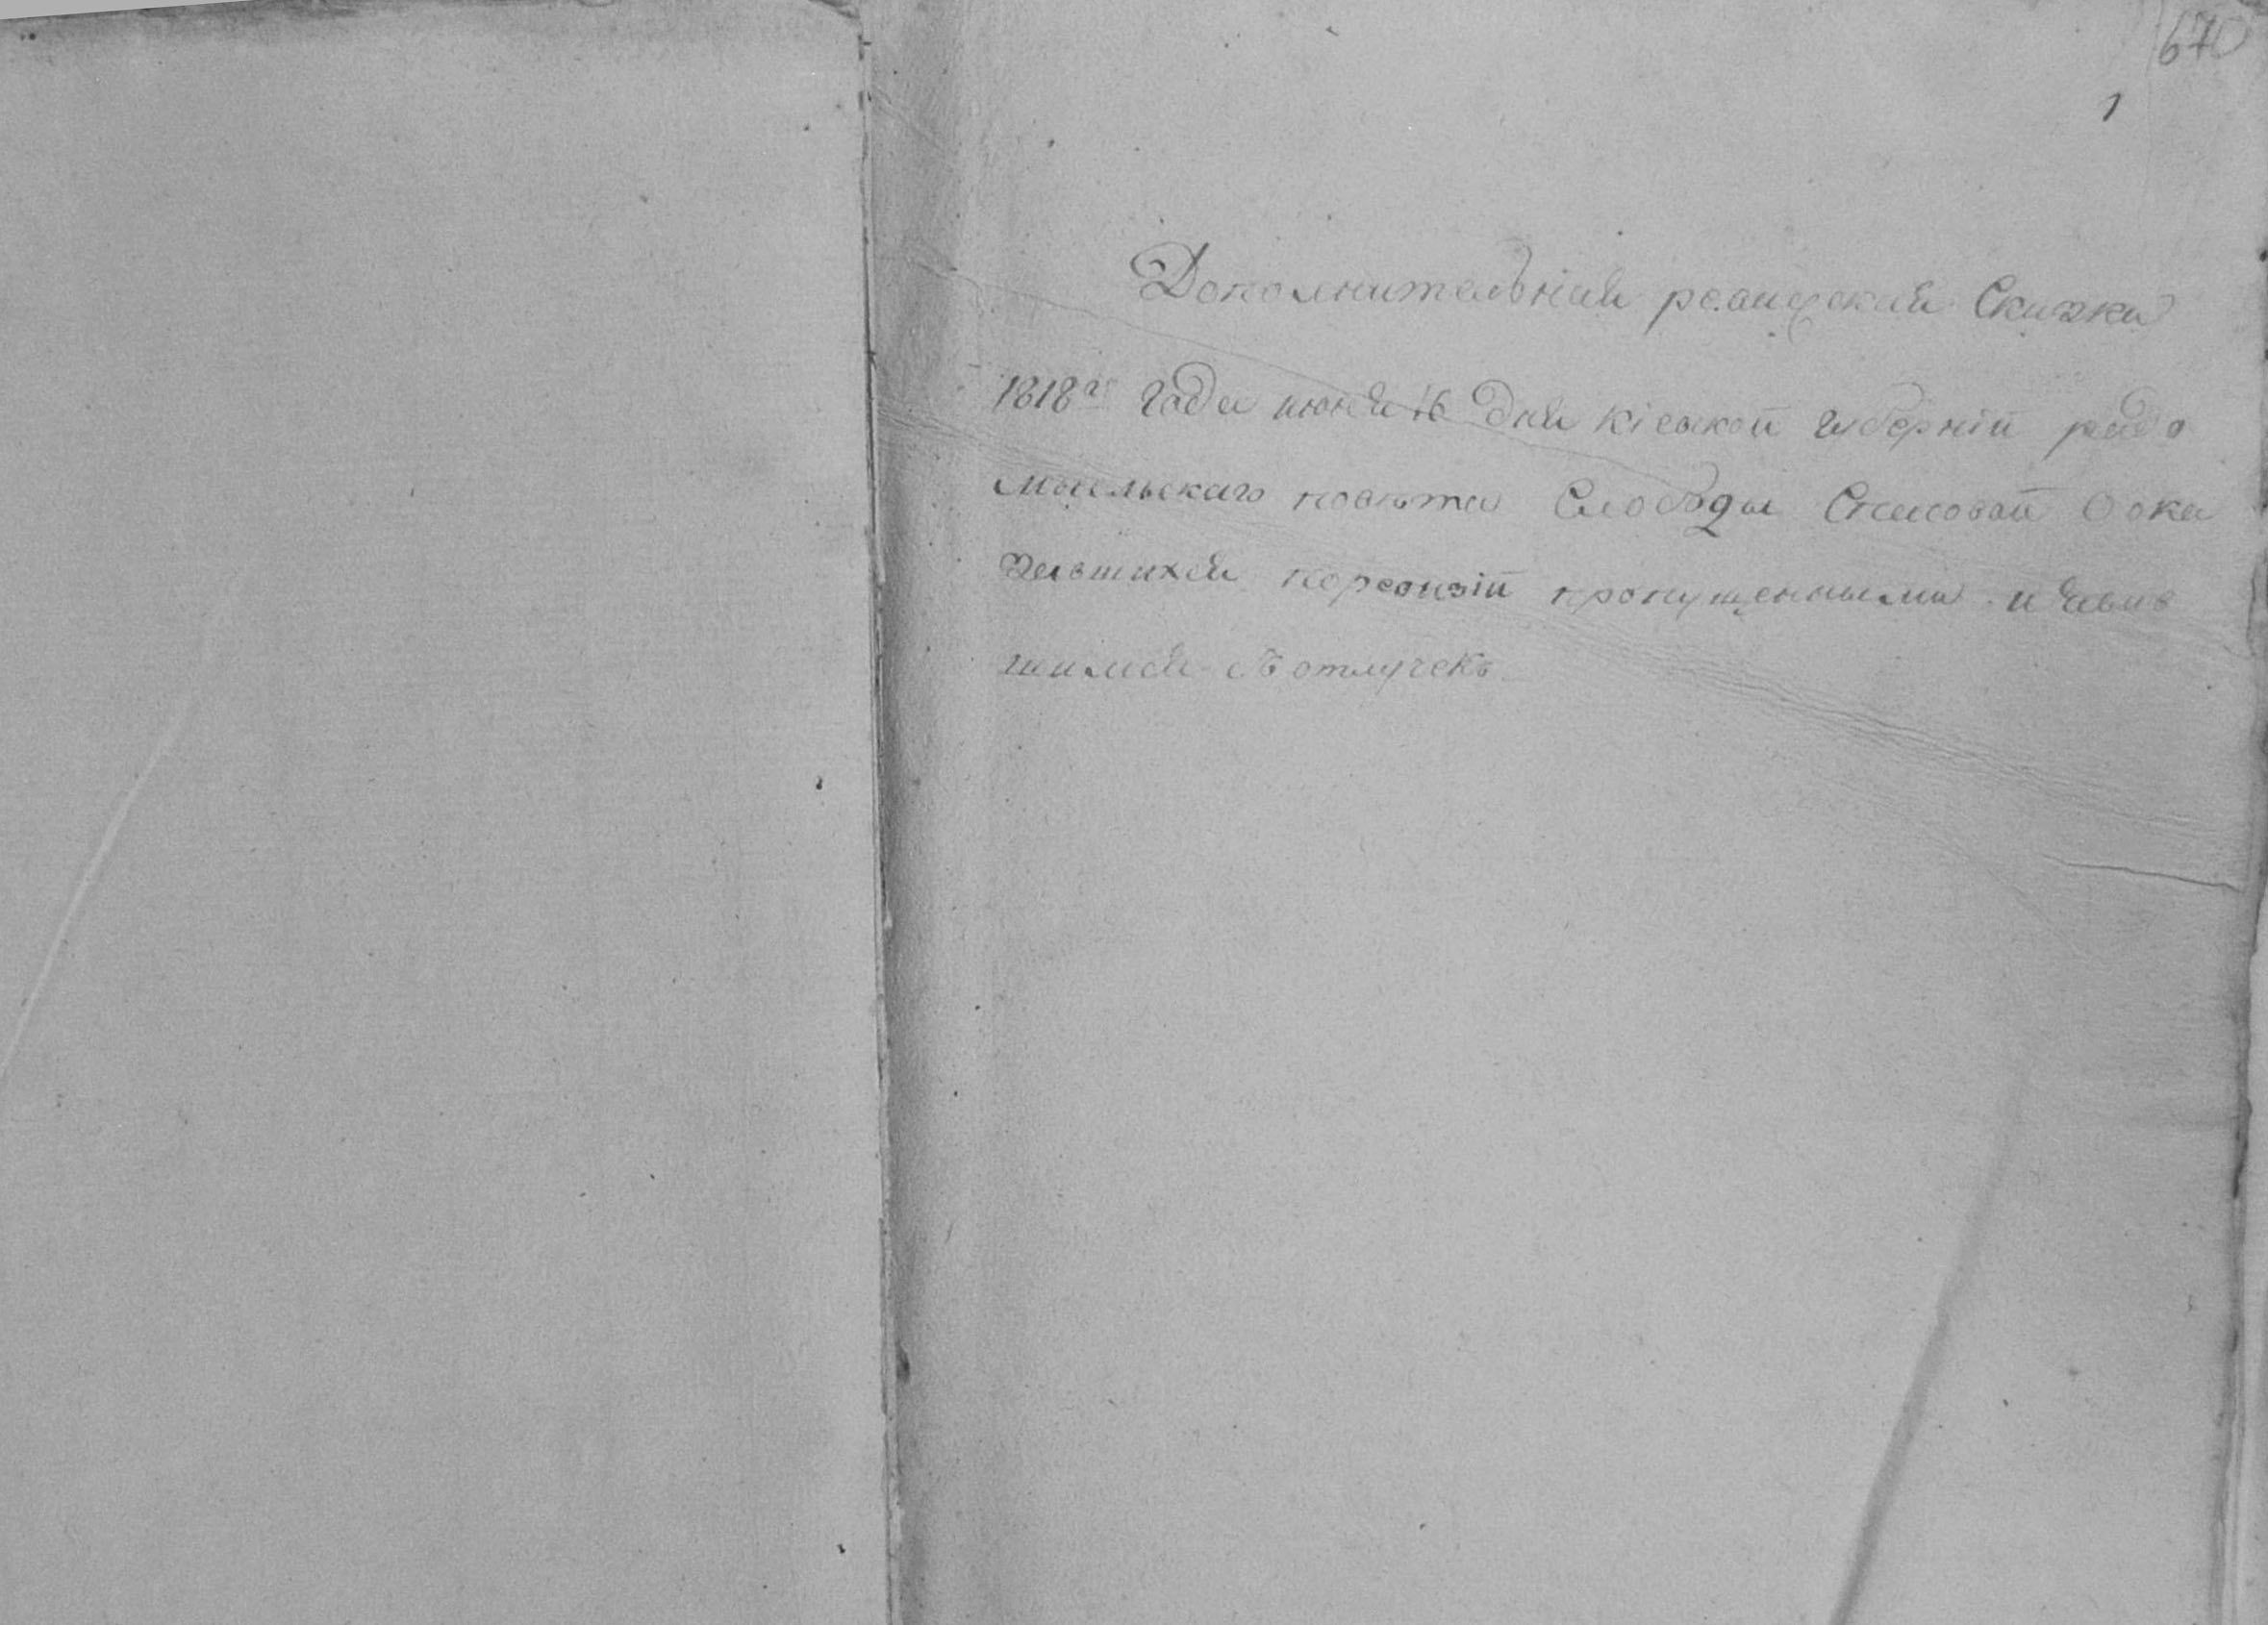 670
1
Дополнительная ревизская Сказка
1818го Года июня 16 дня кіевской губерніи радо
мысльскаго повѣта Слободы оока
завшихся поревизіи пропущенными и явив
шимся зъ отлучекъ